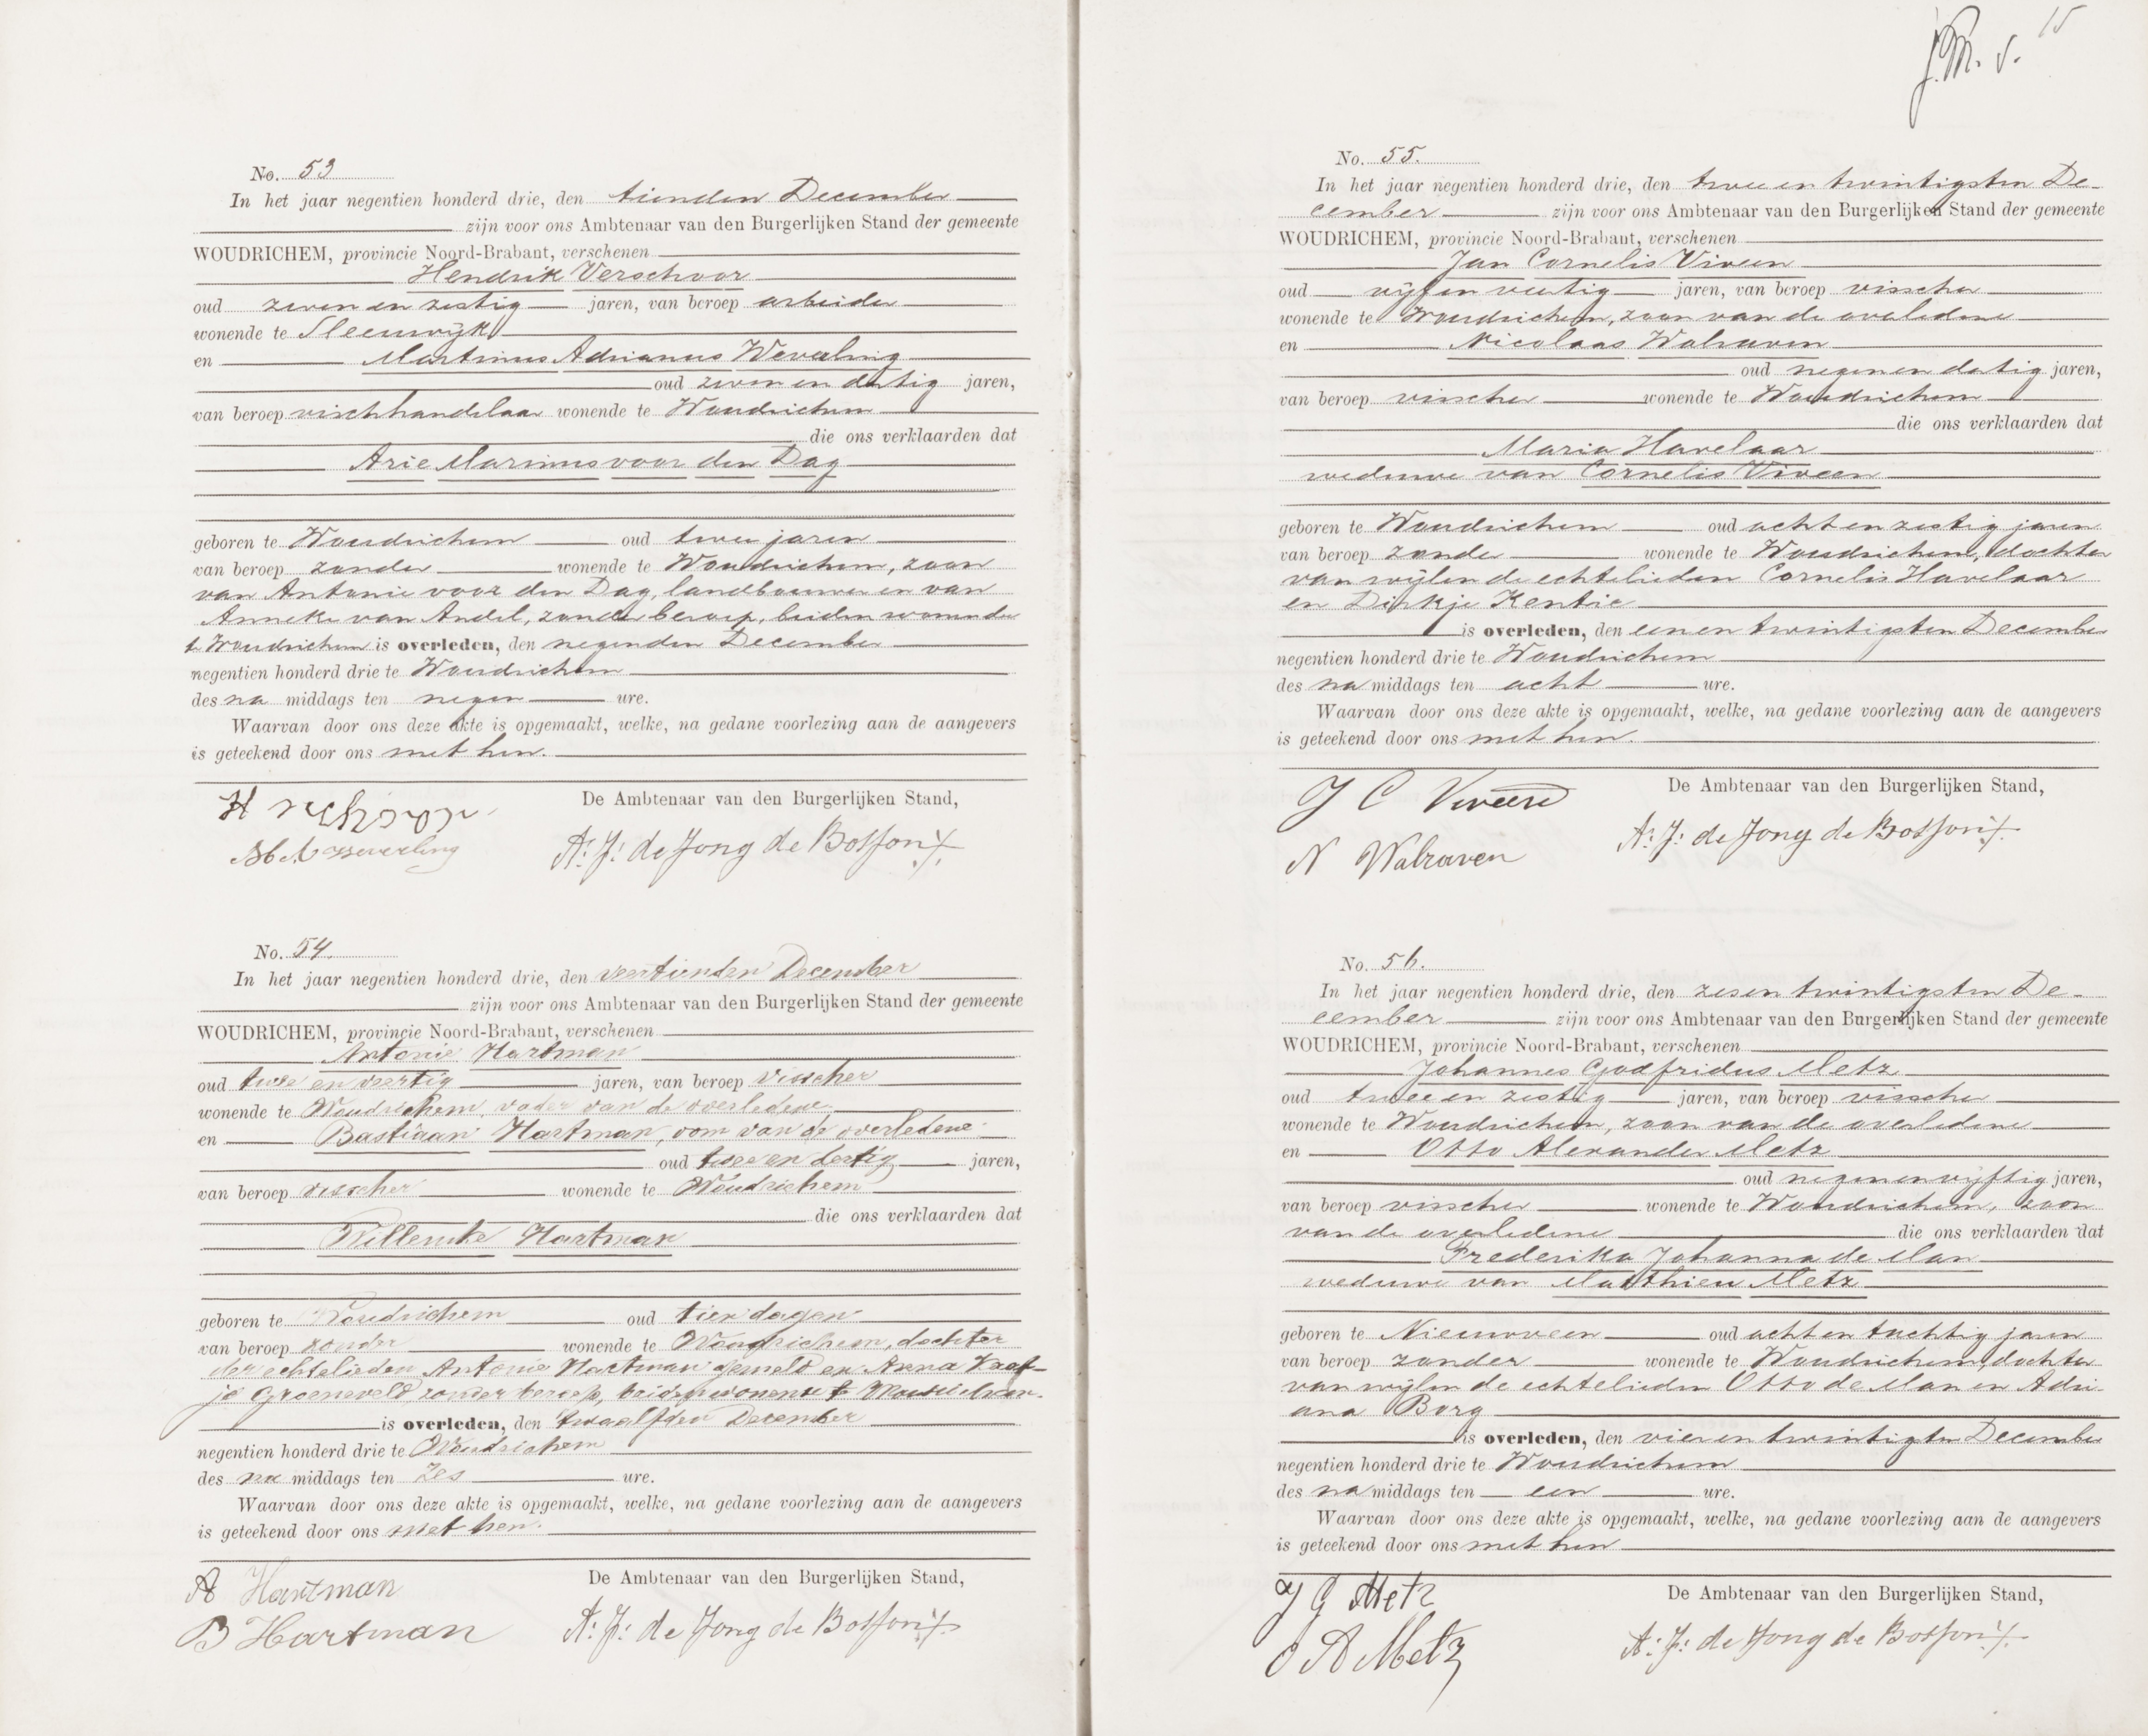 No. 53
In het jaar negentien honderd drie, den tienden December
zijn voor ons Ambtenaar van den Burgerlijken Stand der gemeente
WOUDRICHEM, provincie Noord-Brabant, verschenen
Hendrik Verschoor
oud zeven en zestig jaren, van beroep arbeider
wonende te Sleeuwijk
en Martinus Adrianus Weverling
oud zeven en dertig jaren,
van beroep vischhandelaar wonende te Woudrichem
die ons verklaarden dat
Arie Marinus voor den Dag
geboren te Woudrichem oud twee jaren
van beroep zonder wonende te Woudrichem, zoon
van Antonie voor den Dag, landbouwer en van
Anneke van Andel, zonder beroep, beiden wonende
te Woudrichem is overleden, den negenden December
negentien honderd drie te Woudrichem
des na middags ten negen ure.
Waarvan door ons deze akte is opgemaakt, welke, na gedane voorlezing aan de aangevers
is geteekend door ons met hen.
De Ambtenaar van den Burgerlijken Stand,
H
M A Weverling
A. J. de Jong de Bosson
No. 54.
In het jaar negentien honderd drie, den veertienden December
zijn voor ons Ambtenaar van den Burgerlijken Stand der gemeente
WOUDRICHEM, provincie Noord-Brabant, verschenen
Antonie Hartman
oud twee en veertig jaren, van beroep visscher
wonende te Woudrichem, vader van de overledene
en Bastiaan Hartman, oom van de overledene
oud twee en dertig jaren,
van beroep visscher wonende te Woudrichem
die ons verklaarden dat
Willemke Hartman
geboren te Woudrichem oud tien dagen
van beroep zonder wonende te Woudrichem, dochter
der echtelieden Antonie Hartman gemeld en Anna
je Groeneveld zonder beroep, beiden wonende te Woudrichem.
is overleden, den twaalfden December
negentien honderd drie te Woudrichem
des na middags ten zes ure.
Waarvan door ons deze akte is opgemaakt, welke, na gedane voorlezing aan de aangevers
is geteekend door ons met hen.
De Ambtenaar van den Burgerlijken Stand,
A Hartman
B Hartman
A. J. de Jong de Bosson
15
No. 55.
In het jaar negentien honderd drie, den twee en twintigsten De-
cember zijn voor ons Ambtenaar van den Burgerlijken Stand der gemeente
WOUDRICHEM, provincie Noord-Brabant, verschenen
Jan Cornelis Viveen
oud vijf en veertig jaren, van beroep visscher
wonende te Woudrichem, zoon van de overledene
en Nicolaas Walraven
oud negen en dertig jaren,
van beroep visscher wonende te Woudrichem
die ons verklaarden dat
Maria Havelaar
weduwe van Cornelis Viveen
geboren te Woudrichem oud acht en zestig jaren
van beroep zonder wonende te Woudrichem, dochter
van wijlen de echtelieden Cornelis Havelaar
en Dirkje Kentie
is overleden, den een en twintigsten December
negentien honderd drie te Woudrichem
des na middags ten acht ure.
Waarvan door ons deze akte is opgemaakt, welke, na gedane voorlezing aan de aangevers
is geteekend door ons met hen.
De Ambtenaar van den Burgerlijken Stand,
J C Viveen
N Walraven
A. J. de Jong de Bosson
No. 56.
In het jaar negentien honderd drie, den zes en twintigsten De-
cember zijn voor ons Ambtenaar van den Burgerlijken Stand der gemeente
WOUDRICHEM, provincie Noord-Brabant, verschenen
Johannes Godfridus Metz
oud twee en zestig jaren, van beroep visscher
wonende te Woudrichem, zoon van de overledene
en Otto Alexander Metz
oud negen en vijftig jaren,
van beroep visscher wonende te Woudrichem, zoon
van de overledene die ons verklaarden dat
Frederika Johanna de Man
weduwe van Matthieu Metz
geboren te Nieuwveen oud acht en tachtig jaren
van beroep zonder wonende te Woudrichem, dochter
van wijlen de echtelieden Otto de Man en Adri-
ana Borg
is overleden, den vier en twintigsten December
negentien honderd drie te Woudrichem
des na middags ten een ure.
Waarvan door ons deze akte is opgemaakt, welke, na gedane voorlezing aan de aangevers
is geteekend door ons met hen
De Ambtenaar van den Burgerlijken Stand,
J G Metz
O A Metz
A. J. de Jong de Bosson